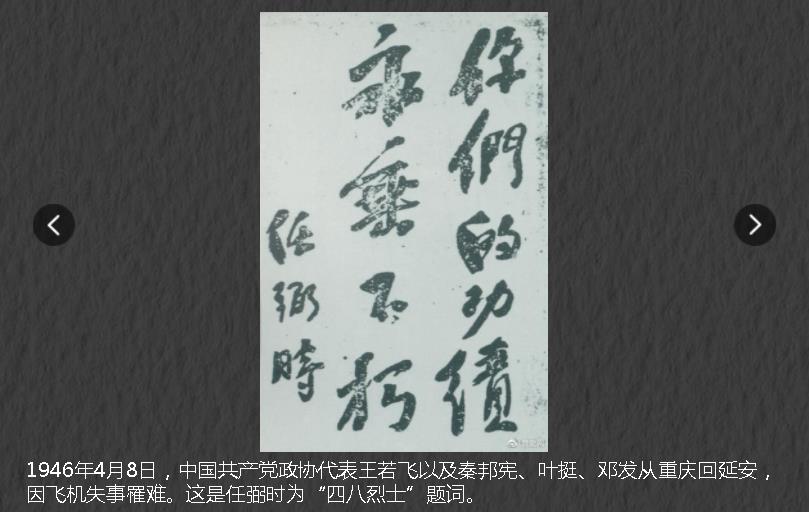 你們的功績
永垂不朽
任弼時
1946年4月8日，中国共产党政协代表王若飞以及秦邦宪、叶挺、邓发从重庆回延安，
因飞机失事罹难。这是任弼时为“四八烈士”题词。